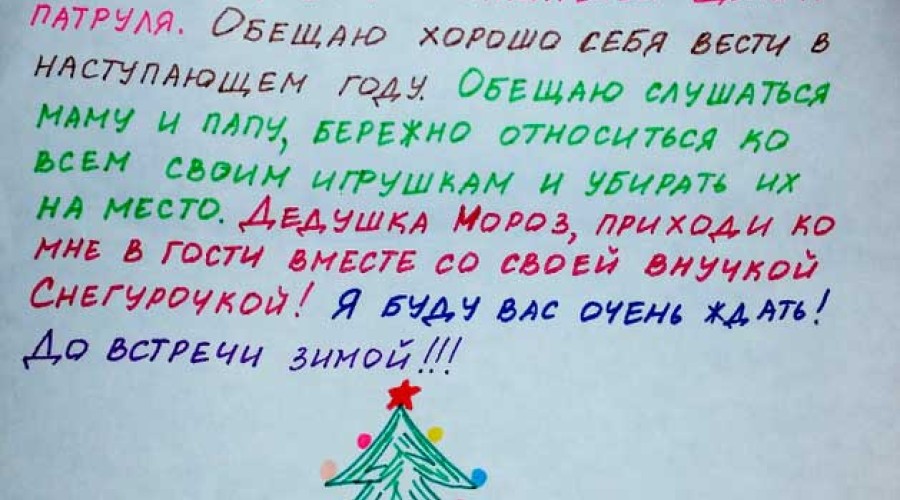 ПАТРУЛЯ. ОБЕЩАЮ ХОРОШО СЕБЯ ВЕСТИ В
НАСТУПАЮЩЕМ ГОДУ. ОБЕЩАЮ СЛУШАТЬСЯ
МАМУ И ПАПУ, БЕРЕЖНО ОТНОСИТЬСЯ КО
ВСЕМ СВОИМ ИГРУШКАМ И УБИРАТЬ ИХ
НА МЕСТО. ДЕДУШКА МОРОЗ, ПРИХОДИ КО
МНЕ В ГОСТИ ВМЕСТЕ СО СВОЕЙ ВНУЧКОЙ
СНЕГУРОЧКОЙ! Я БУДУ ВАС ОЧЕНЬ ЖДАТЬ!
ДО ВСТРЕЧИ ЗИМОЙ!!!